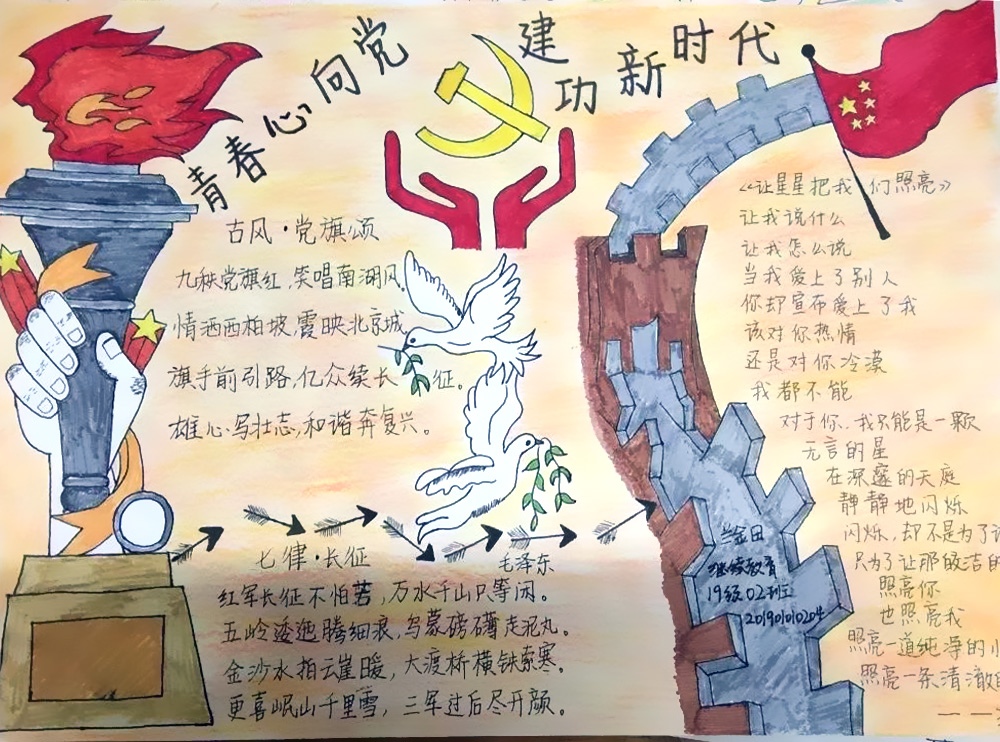 青春心向党
建功新时代
古风·党旗颂
九秩党旗红,笑唱南湖风。
情洒西柏坡,霞映北京城。
旗手前引路,亿众续长征。
雄心写壮志,和谐奔复兴。
七律·长征
毛泽东
红军长征不怕苦,万水千山只等闲。
五岭逶迤腾细浪,乌蒙磅礴走泥丸。
金沙水拍云崖暖,大渡桥横铁索寒。
更喜岷山千里雪,三军过后尽开颜。
《让星星把我们照亮》
让我说什么
让我怎么说
当我爱上了别人
你却宣布爱上了我
该对你热情
还是对你冷漠
我都不能
对于你,我只能是一颗
无言的星
在深邃的天庭
静静地闪烁
闪烁,却不是为了
只为了让那皎洁的
照亮你
也照亮我
照亮一道纯净的小
照亮一条清澈的
金田
继续教育
19级02班
201901010204